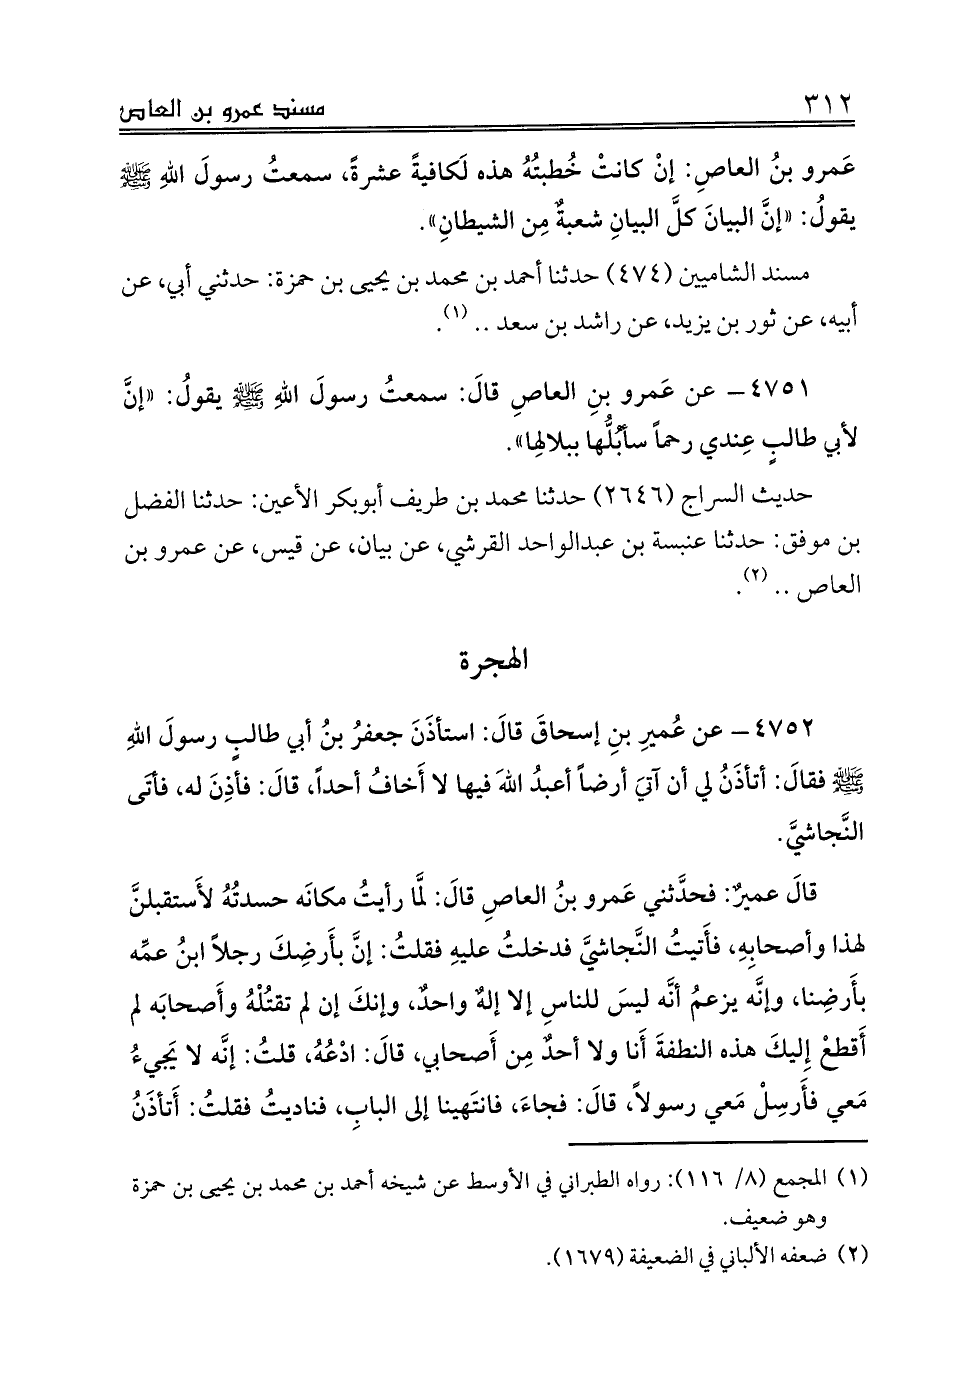 ٣١٢
مسند عمرو بن العاص
عَمرو بنُ العاصِ: إنْ كانتْ خُطبتُهُ هذه لَكافيةً عشرةً، سمعتُ رسولَ اللهِ ﷺ
يقولُ: «إنَّ البيانَ كلَّ البيانِ شعبةٌ مِن الشيطانِ».
مسند الشاميين (٤٧٤) حدثنا أحمد بن محمد بن يحيى بن حمزة: حدثني أبي، عن
أبيه، عن ثور بن يزيد، عن راشد بن سعد .. (١).
٤٧٥١ – عن عَمرو بنِ العاصِ قالَ: سمعتُ رسولَ اللهِ ﷺ يقولُ: «إنَّ
لأبي طالبٍ عِندي رحماً سأبُلُّها ببلالِها».
حديث السراج (٢٦٤٦) حدثنا محمد بن طريف أبوبكر الأعين: حدثنا الفضل
بن موفق: حدثنا عنبسة بن عبدالواحد القرشي، عن بيان، عن قيس، عن عمرو بن
العاص .. (٢).
الهجرة
٤٧٥٢ – عن عُميرِ بنِ إسحاقَ قالَ: استأذَنَ جعفرُ بنُ أبي طالبٍ رسولَ اللهِ
ﷺ فقالَ: أتأذَنُ لي أن آتيَ أرضاً أعبدُ اللهَ فيها لا أَخافُ أحداً، قالَ: فأذِنَ له، فأتى
النَّجاشيَّ.
قالَ عميرٌ: فحدَّثني عَمرو بنُ العاصِ قالَ: لمَّا رأيتُ مكانَه حسدتُهُ لأَستقبلنَّ
لهذا وأصحابِهِ، فأَتيتُ النَّجاشيَّ فدخلتُ عليهِ فقلتُ: إنَّ بأَرضِكَ رجلاً ابنُ عمِّه
بأَرضِنا، وإنَّه يزعمُ أنَّه ليسَ للناسِ إلا إلهٌ واحدٌ، وإنكَ إن لم تقتُلْهُ وأَصحابَه لم
أَقطعْ إِليكَ هذه النطفةَ أنا ولا أحدٌ مِن أَصحابي، قالَ: ادْعُهُ، قلتُ: إنَّه لا يَجيءُ
مَعي فأَرسِلْ مَعي رسولاً، قالَ: فجاءَ، فانتَهينا إلى البابِ، فناديتُ فقلتُ: أَتأذَنُ
(١) المجمع (٨/ ١١٦): رواه الطبراني في الأوسط عن شيخه أحمد بن محمد بن يحيى بن حمزة
وهو ضعيف.
(٢) ضعفه الألباني في الضعيفة (١٦٧٩).